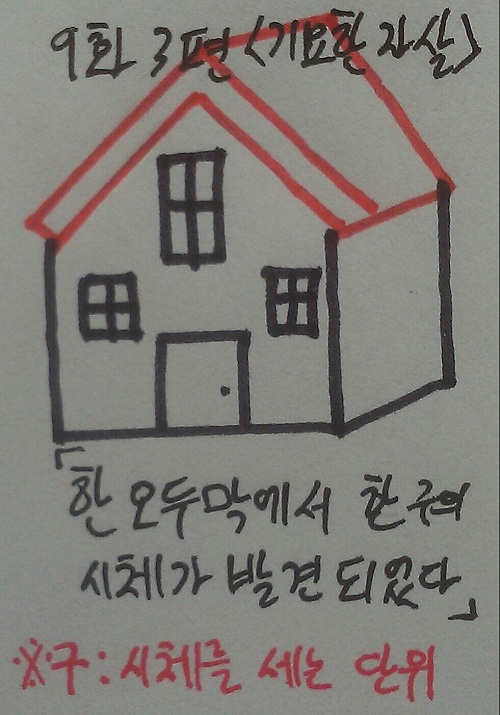 9화 3편 <기묘한 자살>
「한 오두막에서 한 구의
시체가 발견되었다」
※구: 시체를 세는 단위